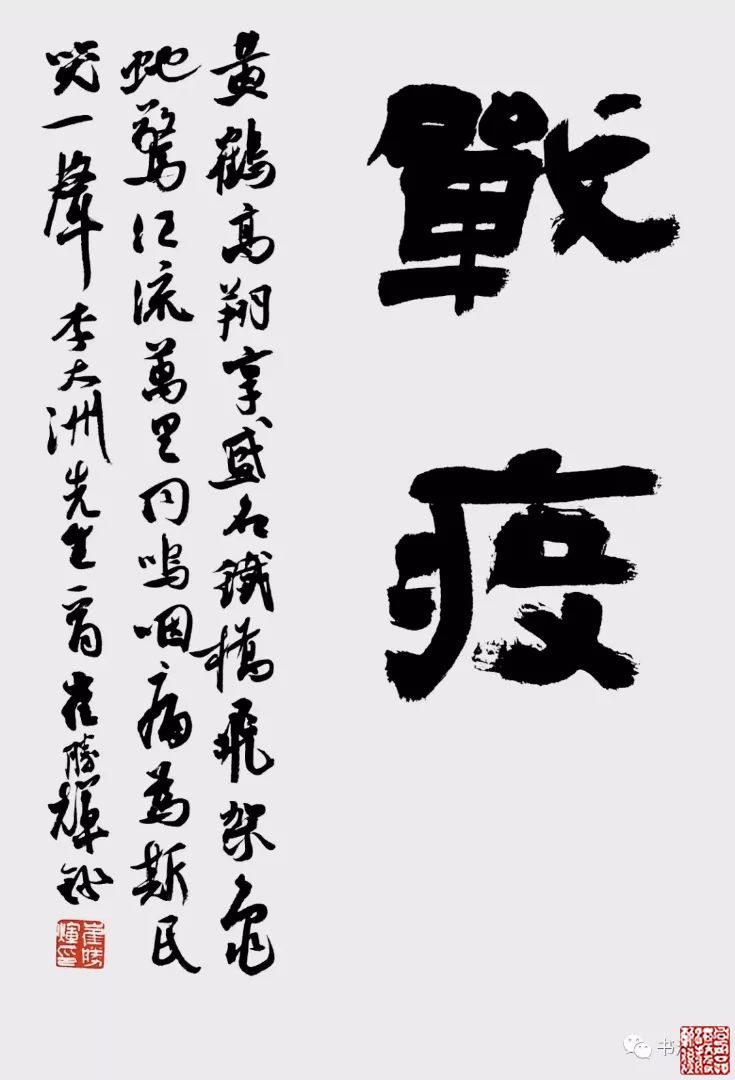 戰疫
黃鶴高翔享盛名鐵橋飛架龜
蛇驚江流萬里同嗚咽痛為斯民
哭一聲李大洲先生一首崔勝輝
崔勝煇印
书